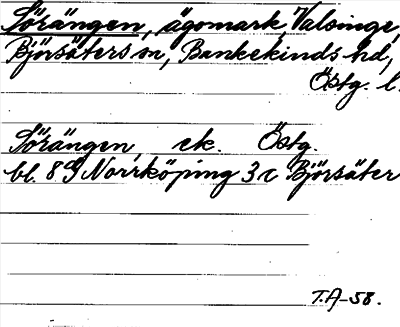 Sörängen, ägomark, Valsinge,
Björsäters sn, Bankekinds hd,
Östg. l.
Sörängen, ek. Östg.
bl. 8G Norrköping 3 c Björsäter
T.A-58.